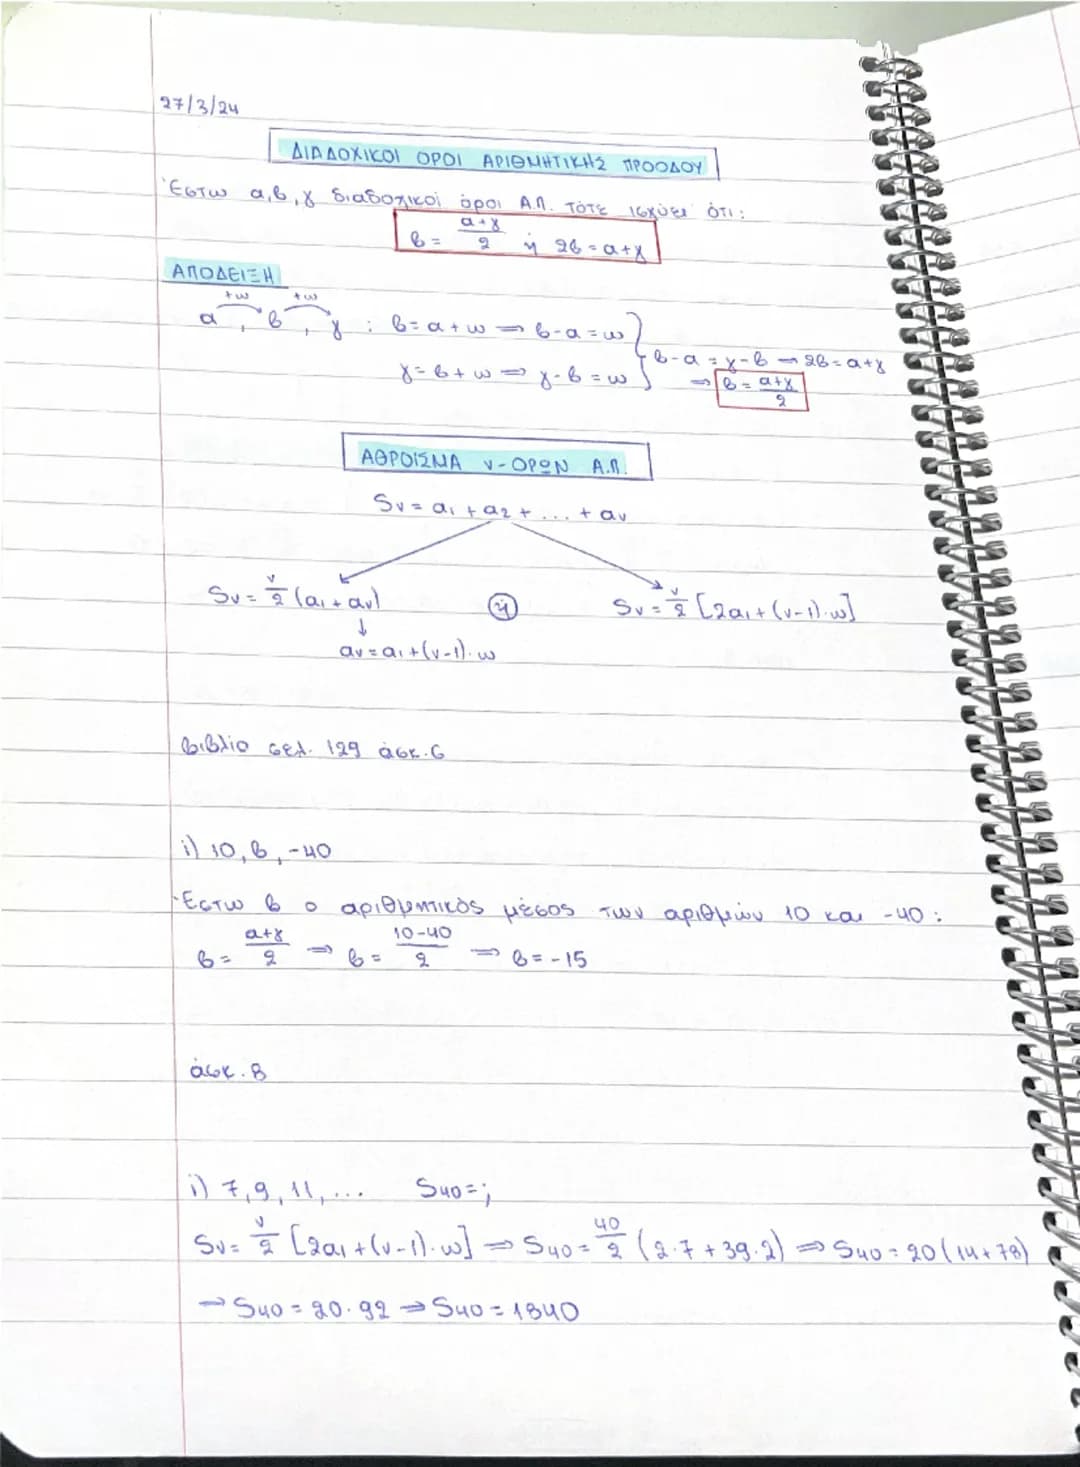 27/3/24
ΔΙΑΔΟΧΙΚΟΙ ΟΡΟΙ ΑΡΙΘΜΗΤΙΚΗΣ ΠΡΟΟΔΟΥ
Έστω α,β,γ διαδοχικοί όροι Α.Π. τότε ισχύει ότι:
β = α+γ/2 ή 2β = α+γ
ΑΠΟΔΕΙΞΗ
+ω +ω
α , β , γ : β = α + ω ⇒ β-α = ω
γ = β + ω ⇒ γ-β = ω
β-α = γ-β ⇒ 2β = α+γ
⇒ β = α+γ/2
ΑΘΡΟΙΣΜΑ ν-ΟΡΩΝ Α.Π.
Sν = α₁ + α₂ + ... + αν
Sν = ν/2 (α₁ + αν) ή Sν = ν/2 [2α₁ + (ν-1)·ω]
↓
αν = α₁ + (ν-1)·ω
βιβλίο σελ. 129 άσκ. 6
i) 10, β, -40
Έστω β ο αριθμητικός μέσος των αριθμών 10 και -40:
β = α+γ/2 ⇒ β = 10-40/2 ⇒ β = -15
άσκ. 8
i) 7, 9, 11, ... S₄₀ = ;
Sν = ν/2 [2α₁ + (ν-1)·ω] ⇒ S₄₀ = 40/2 (2·7 + 39·2) ⇒ S₄₀ = 20(14 + 78)
⇒ S₄₀ = 20·92 ⇒ S₄₀ = 1840